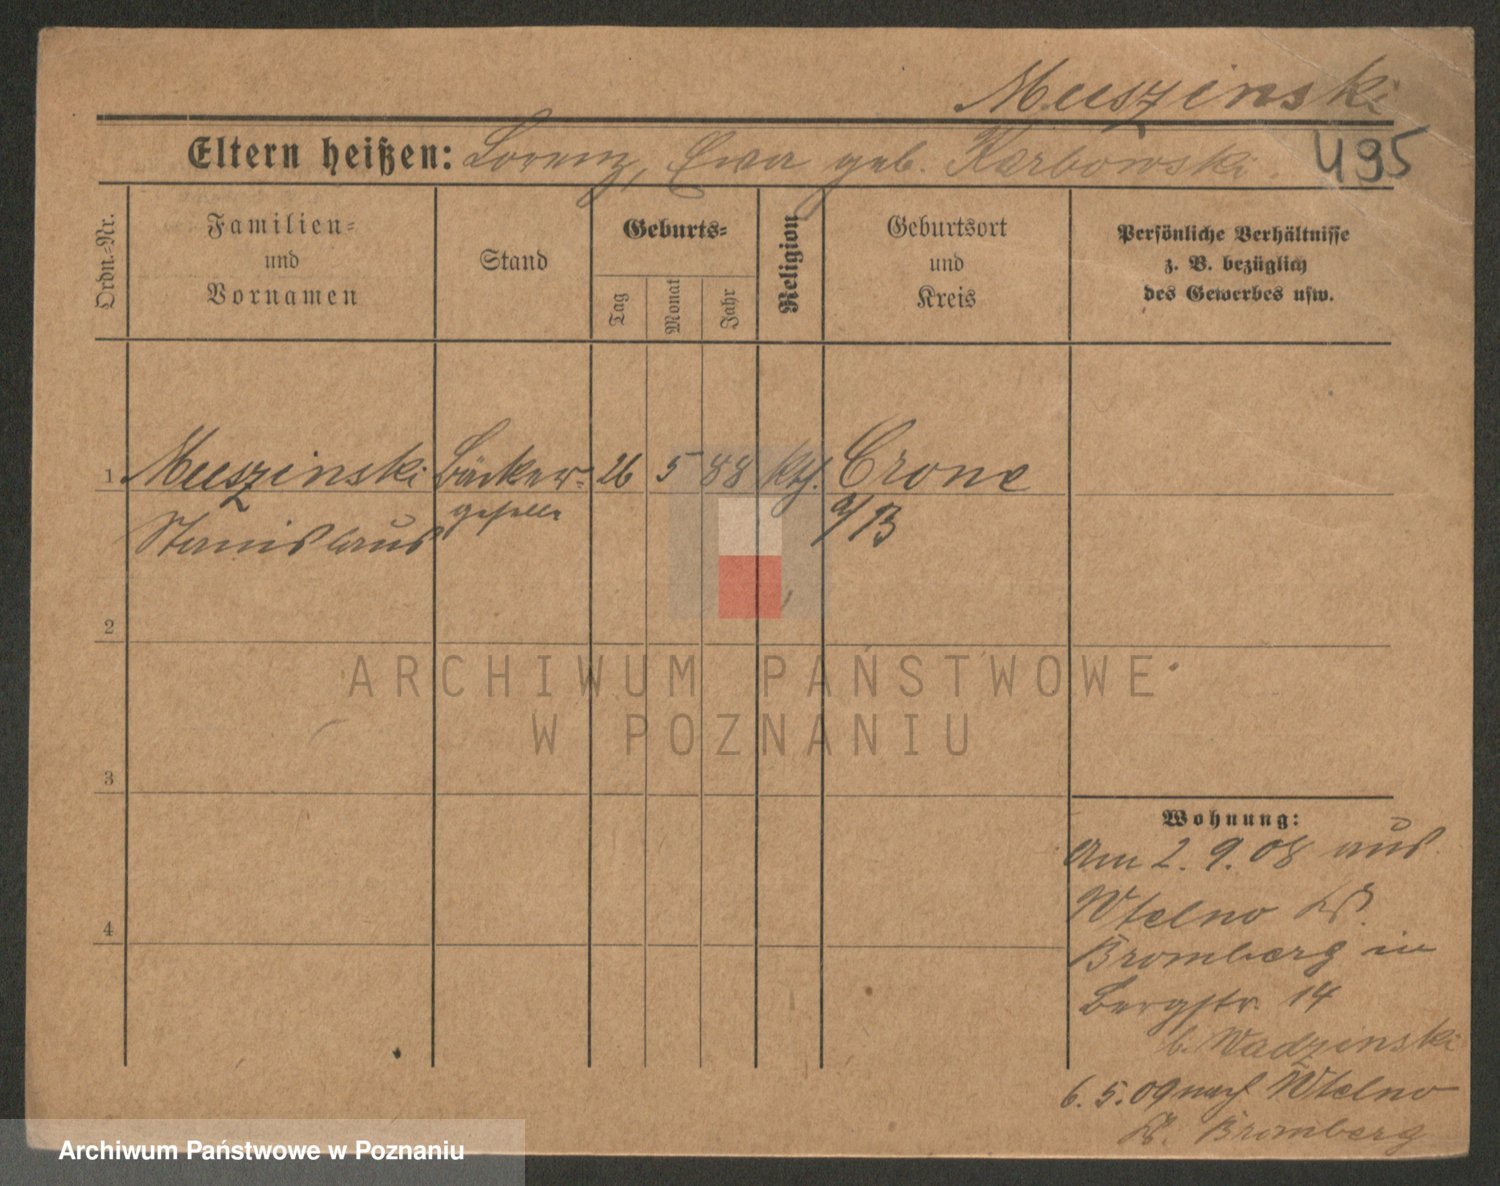 Muszinski
495
Eltern heißen: Lorenz, Ewa geb. Karbowski.
Ordn.-Nr.
Familien-
und
Vornamen
Stand
Geburts-
Tag
Monat
Jahr
Religion
Geburtsort
und
Kreis
Persönliche Verhältnisse
z. B. bezüglich
des Gewerbes usw.
1 Muszinski Bäcker- 26 5 88 kth. Crone
Stanislaus geselle a/B
2
3
4
Wohnung:
Am 2. 9. 08 aus
Wtelno Kr.
Bromberg in
Bergstr. 14
b. Wadzinski
6. 5. 09 nach Wtelno
Kr. Bromberg
ARCHIWUM PAŃSTWOWE
W POZNANIU
Archiwum Państwowe w Poznaniu